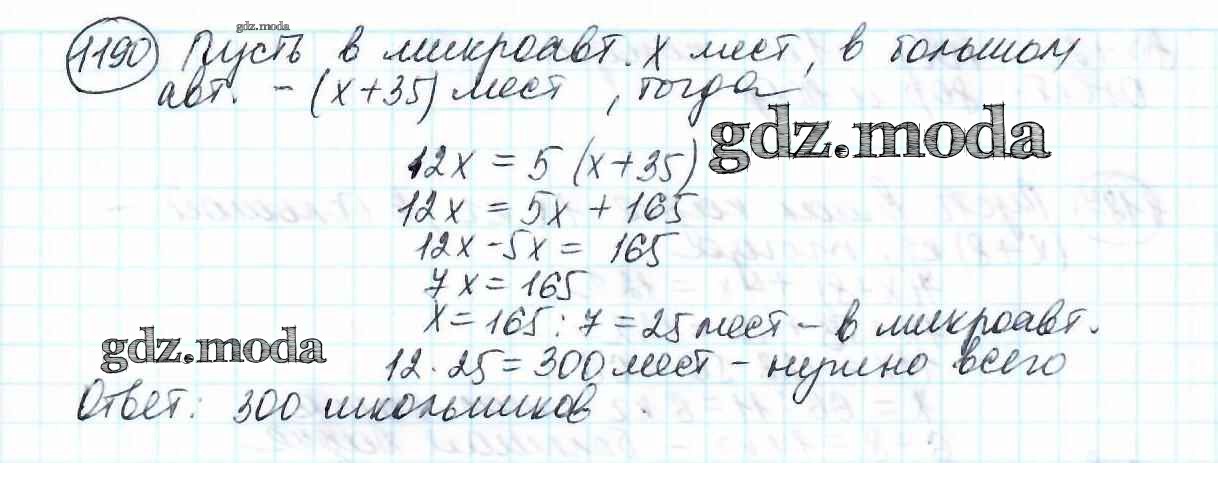 gdz.moda
1190 Пусть в микроавт. x мест, в большом
авт. - (x+35) мест, тогда
gdz.moda
12x = 5 (x+35)
12x = 5x + 165
12x - 5x = 165
7x = 165
x = 165 : 7 = 25 мест - в микроавт.
gdz.moda
12 · 25 = 300 мест - нужно всего
Ответ: 300 школьников